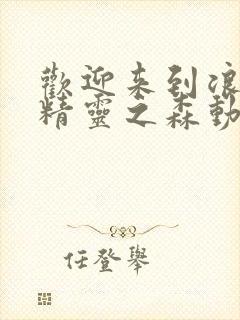 歡迎来到浪
精靈之森動
任登舉